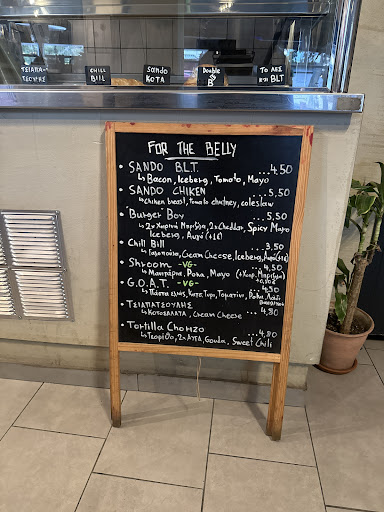 ΤΣΙΑΠΑ-
CHILL
BILL
Sando
KOTA
Double
B
ΤΟ ΛΕΣ
BLT
FOR THE BELLY
• SANDO B.L.T. ...4,50
↳ Bacon, Iceberg, Tomato, Mayo
• SANDO CHIKEN ...5,50
↳ Chiken breast, Tomato chutney, coleslaw
• Burger Boy ...5,50
↳ 2x Χωρινά Μπριζόλα, 2x Cheddar, Spicy Mayo
Iceberg, Αυγό (+1€)
• Chill Bill ...3,50
↳ Γαλοπούλα, Cream Cheese, Iceberg, Αυγό (+1€)
• Shroom -VG- ...4,50
↳ Μανιτάρια, Ρόκα, Mayo (X
• G.O.A.T. -VG- ...4,30
↳ Πάστα ελιάς, Κατσ. Τυρί, Τοματίνι, Ρόκα, Λάδι
• ΤΣΙΑΠΑΤΣΟΥΛΗΣ ...4,80
↳ Κοτοσαλάτα, Cream Cheese
• Tortilla Chorizo ...4,80
↳ Τσορίθο, 2x Αυγά, Gouda, Sweet Chili